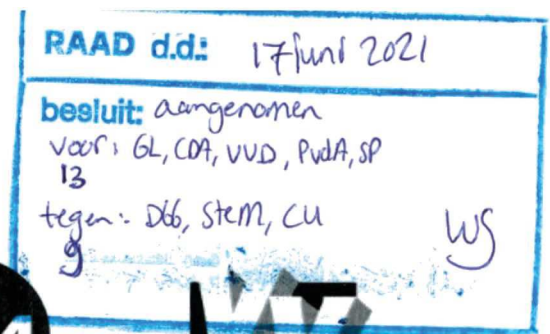 RAAD d.d.: 17 juni 2021
besluit: aangenomen
voor: GL, CDA, VVD, PvdA, SP
13
tegen: D66, SteM, CU
9
WS